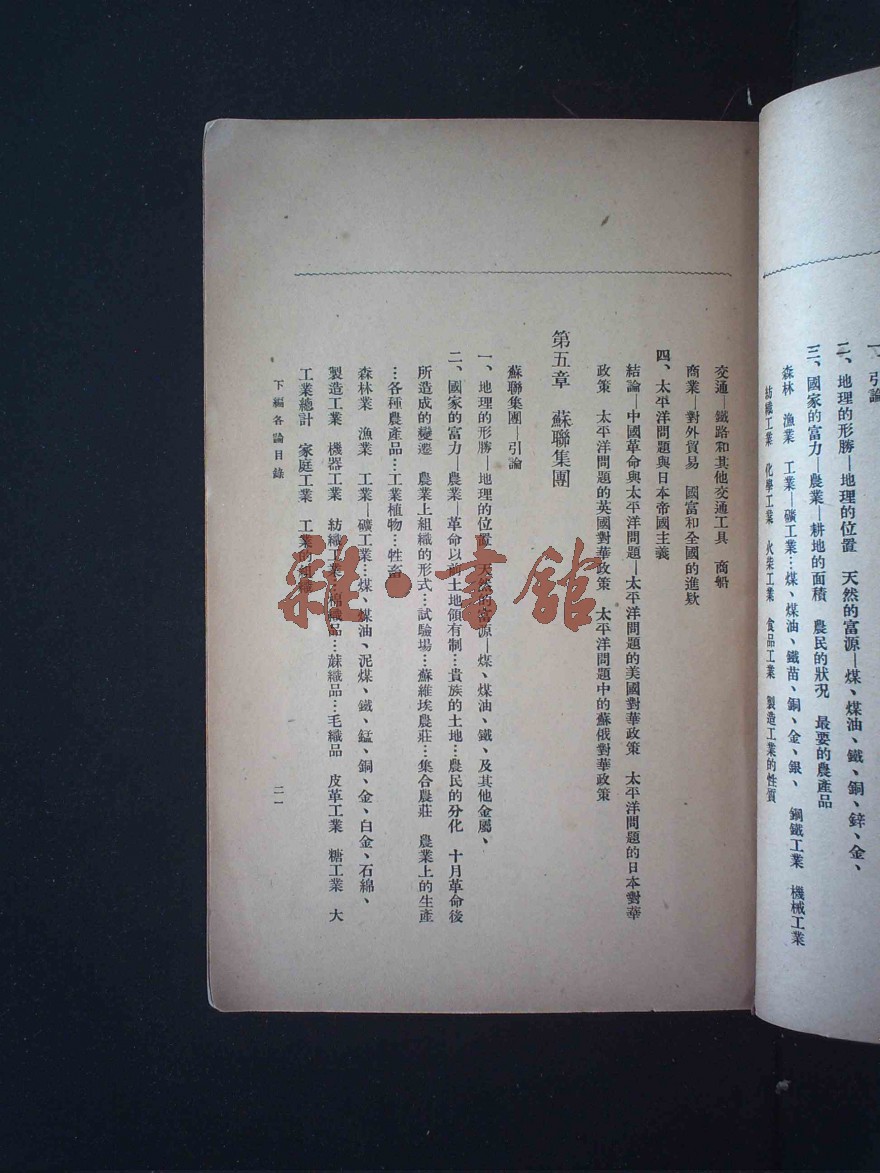 一、引論
二、地理的形勝—地理的位置　天然的富源—煤、煤油、鐵、銅、鋅、金、
三、國家的富力—農業—耕地的面積　農民的狀況　最要的農產品
森林　漁業　工業—礦工業…煤、煤油、鐵苗、銅、金、銀、　鋼鐵工業　機械工業
紡織工業　化學工業　火柴工業　食品工業　製造工業的性質
交通—鐵路和其他交通工具　商船
商業—對外貿易　國富和全國的進款
四、太平洋問題與日本帝國主義
結論—中國革命與太平洋問題—太平洋問題的美國對華政策　太平洋問題的日本對華
政策　太平洋問題的英國對華政策　太平洋問題中的蘇俄對華政策
第五章　蘇聯集團
蘇聯集團　引論
一、地理的形勝—地理的位置　天然的富源—煤、煤油、鐵、及其他金屬、
二、國家的富力—農業—革命以前土地領有制…貴族的土地…農民的分化　十月革命後
所造成的變遷　農業上組織的形式…試驗場…蘇維埃農莊…集合農莊　農業上的生產
…各種農產品…工業植物…牲畜
森林業　漁業　工業—礦工業…煤、煤油、泥煤、鐵、錳、銅、金、白金、石綿、
製造工業　機器工業　紡織工業…棉織品…蔴織品…毛織品　皮革工業　糖工業　大
工業總計　家庭工業　工業的組織
下編各論目錄
二一
雜·書館